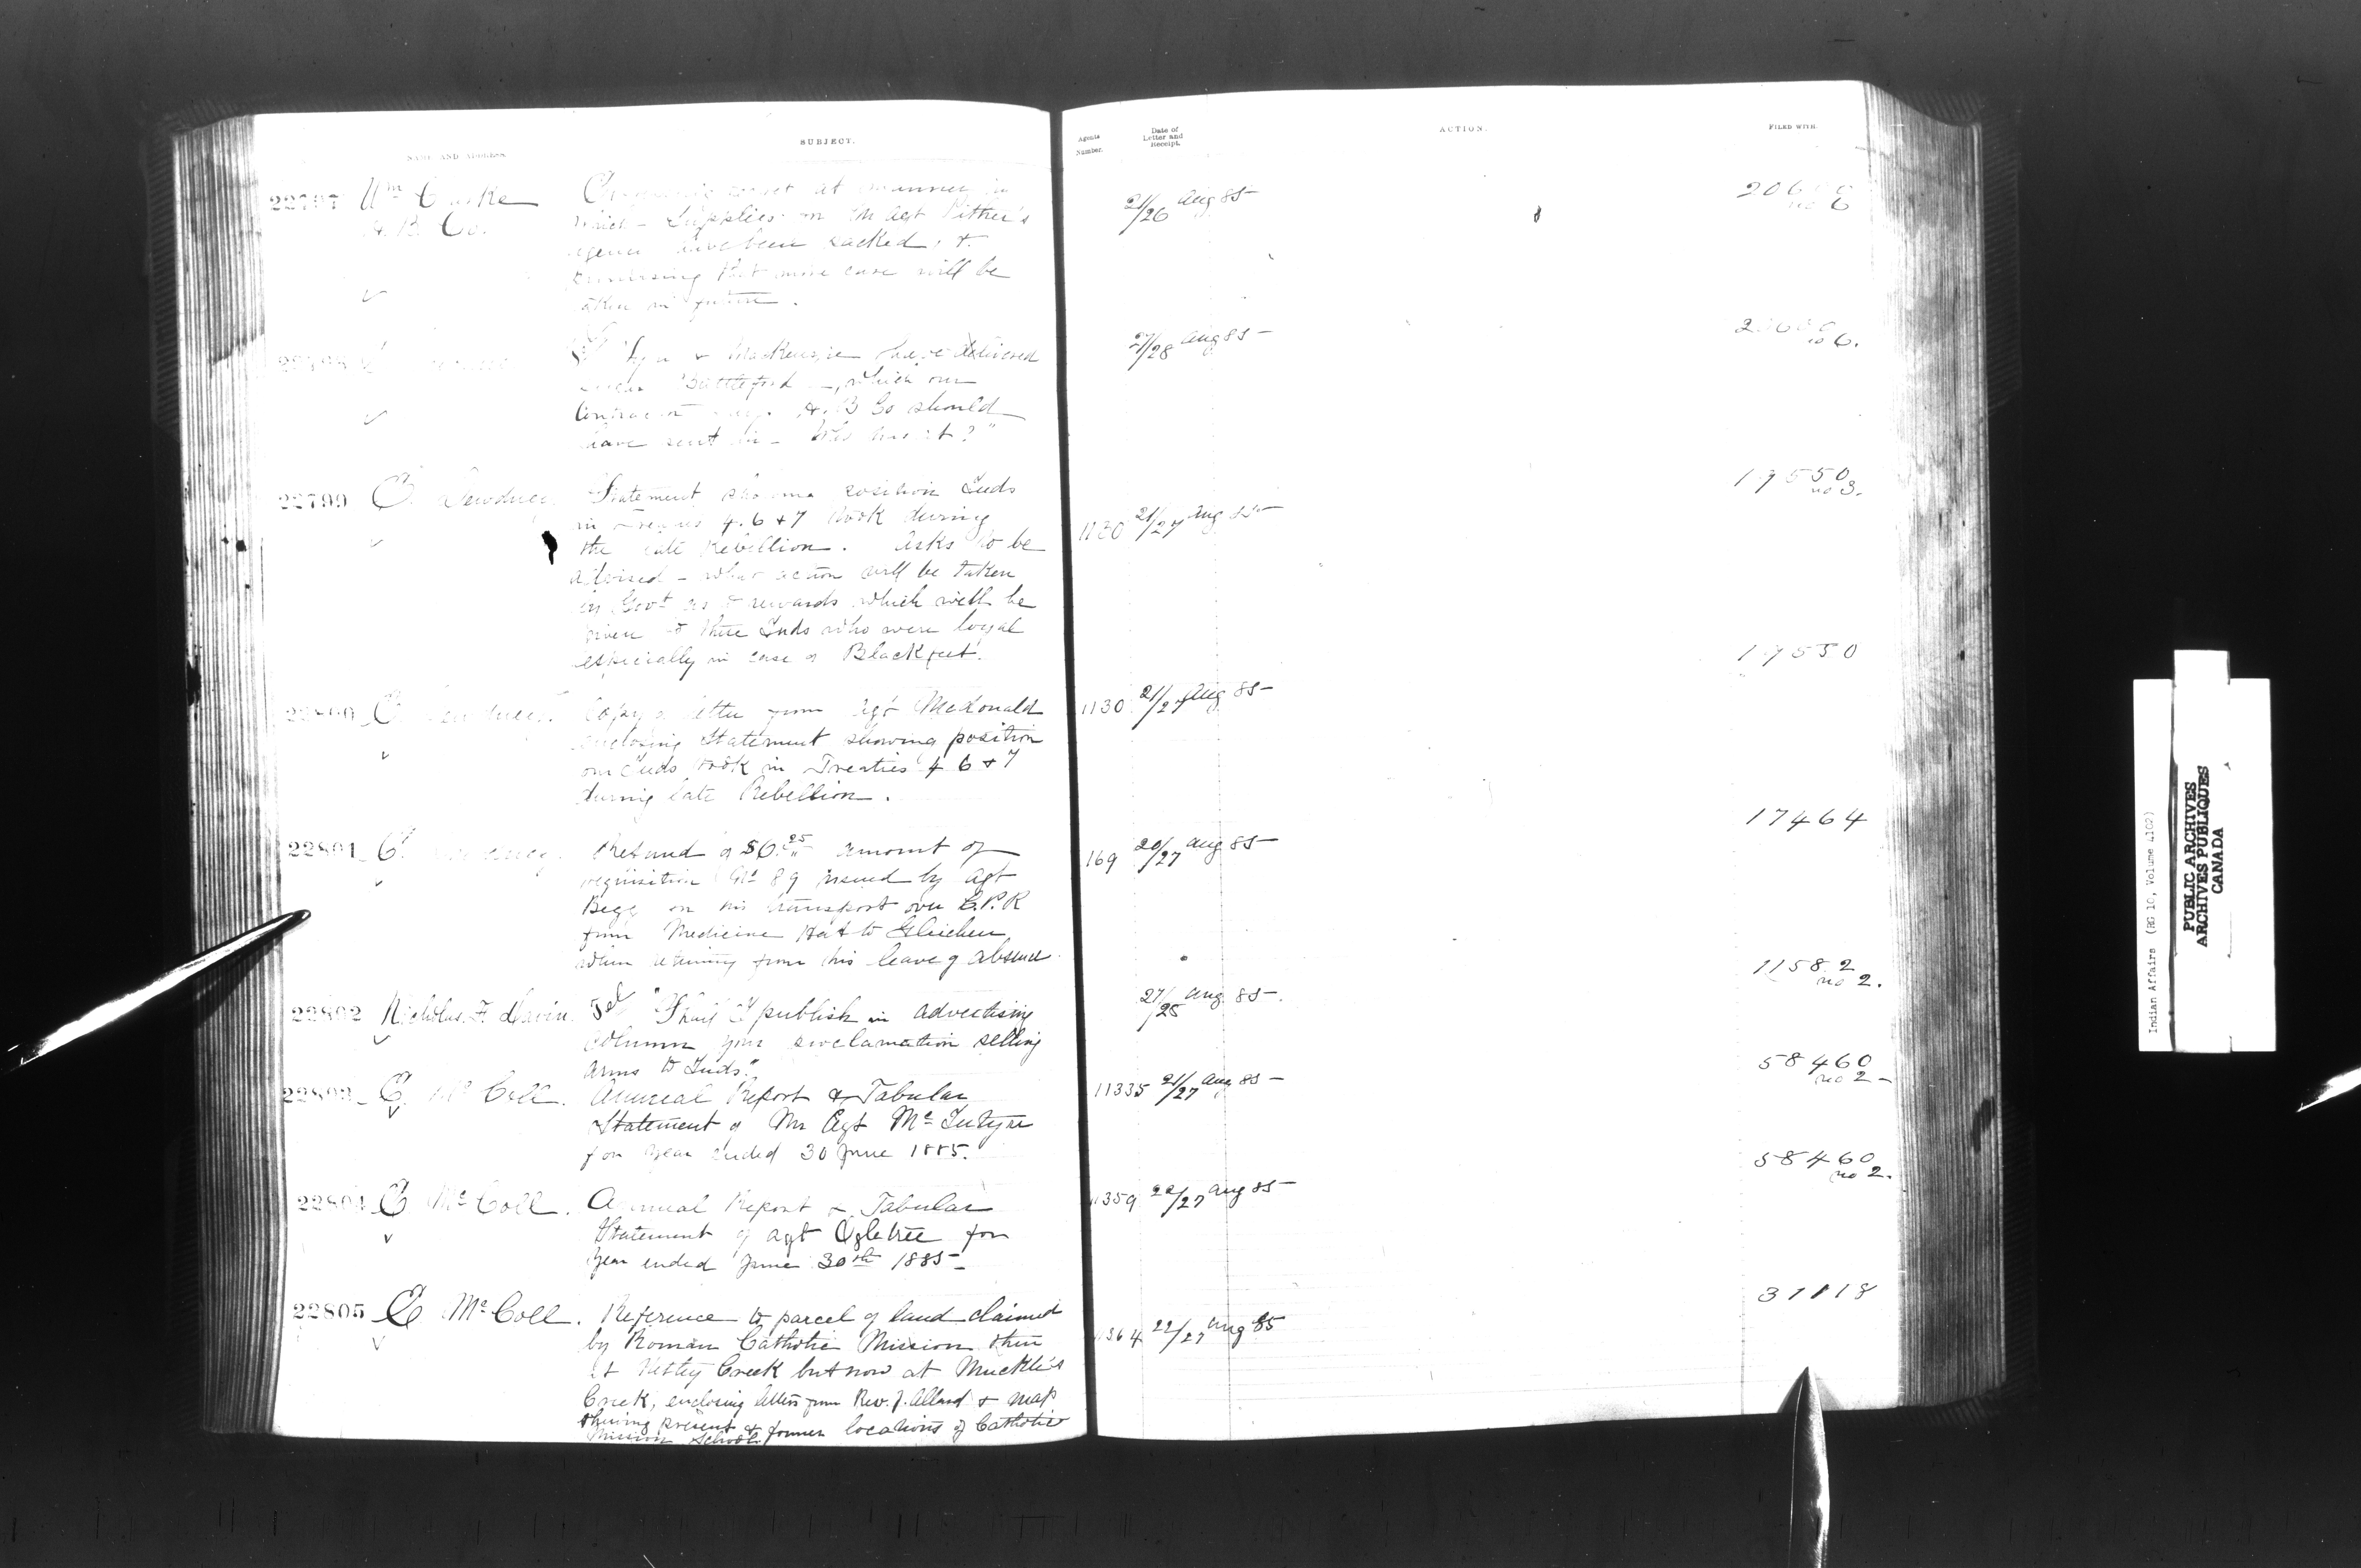 NAME AND ADDRESS
SUBJECT.
Agents Number.
Date of Letter and Receipt.
ACTION.
FILED WITH.
22797 Wm
H. B. Co.
at manner in
which Supplies in Agt Pither's
have been sacked, &
that more care will be
taken in future.
21/26 Aug 85
no 6
Tel
& MacKenzie have delivered
Battleford, which our
H. B Co should
have sent in - Who has it?"
27/28 Aug 85
no 6.
22799 E. Dewdney
Statement showing position Inds
in Treaties 4. 6 & 7 took during
the late Rebellion. Asks to be
advised - what action will be taken
by Govt as to rewards which will be
given to those Inds who were loyal
especially in case of Blackfeet.
1130 21/27 Aug 85
19550
no 3.
22800 E. Dewdney.
Copy of letter from Agt McDonald
enclosing Statement showing position
our Inds took in Treaties 4 6 & 7
during late Rebellion.
1130 21/27 Aug 85
19550
22801 E. Dewdney.
Refund of $6.25 amount of
requisition No 89 issued by Agt
Begg on his transport over C.P.R
from Medicine Hat to Gleichen
when returning from his leave of absence
169 20/27 Aug 85
17464
22802 Nicholas F. Davin.
Tel "Shall I publish in advertising
column your proclamation selling
arms to Inds."
Aug 85.
11582
no 2.
22803 E. McColl.
Annual Report & Tabular
Statement of Mr Agt McIntyre
for Year ended 30 June 1885.
11335 21/27 Aug 85
58460
no 2
22804 E McColl.
Annual Report & Tabular
Statement of Agt Ogletree for
Year ended June 30th 1885
11359 22/27 Aug 85
58460
no 2.
22805 E McColl.
Reference to parcel of land claimed
by Roman Catholic Mission then
at Netley Creek but now at Muckle's
Creek, enclosing letters from Rev. J. Allard & map
showing present & former locations of Catholic
Mission Schools
11364 22/27 Aug 85
31118
Indian Affairs (RG 10, Volume 4102)
PUBLIC ARCHIVES
ARCHIVES PUBLIQUES
CANADA